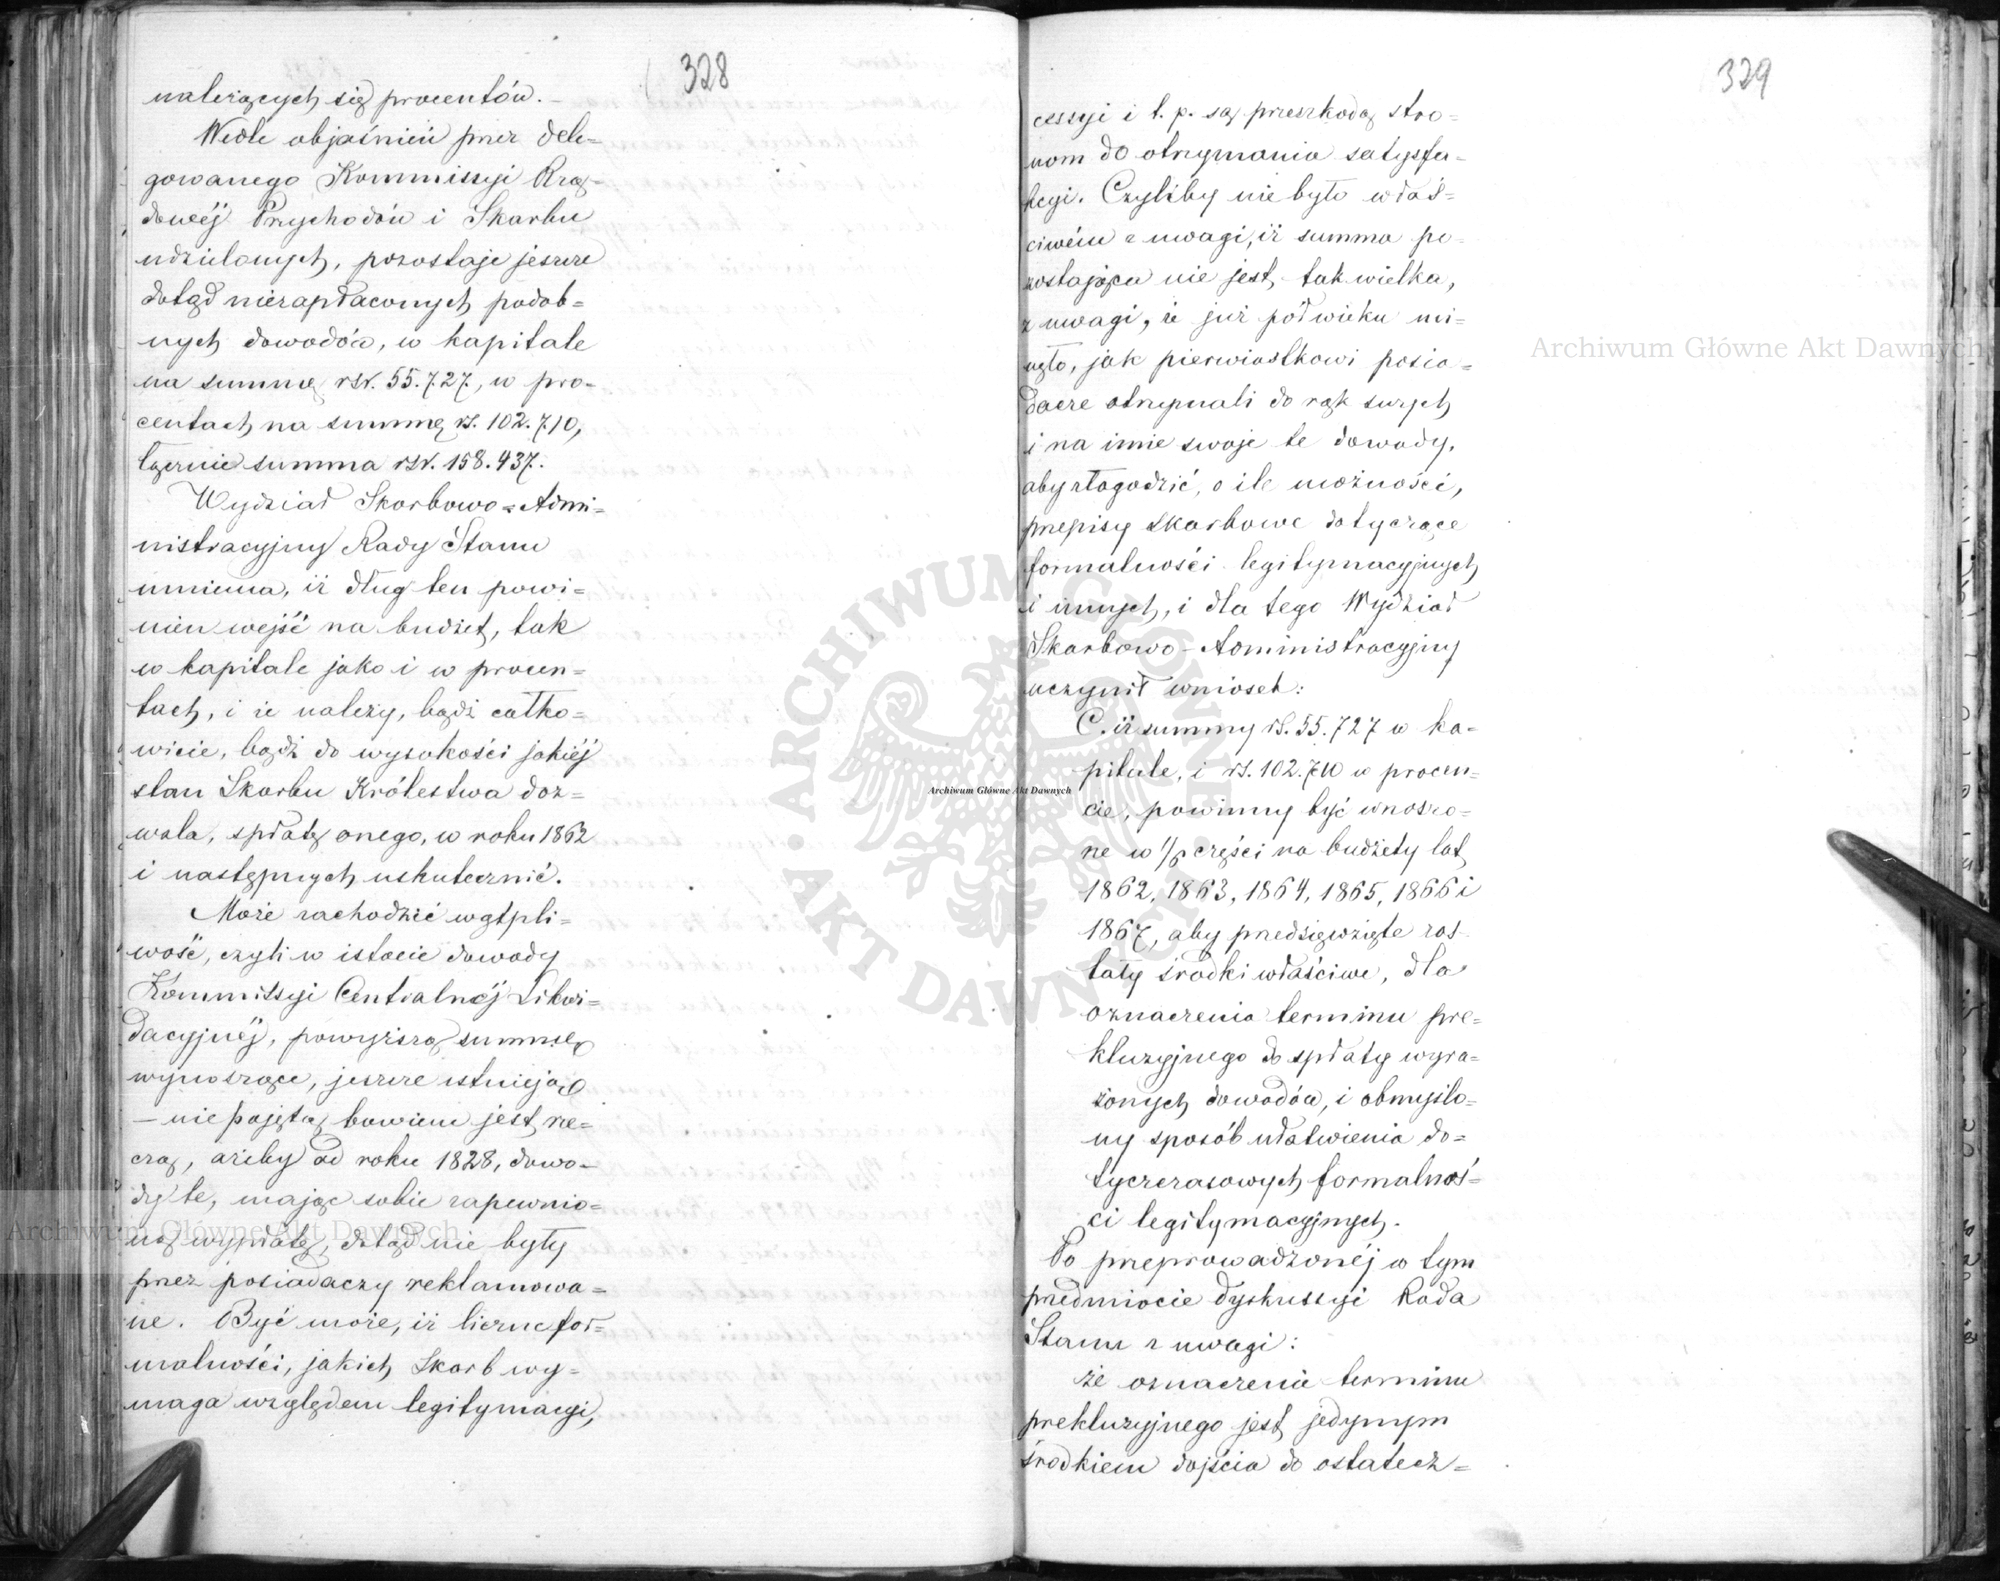 328
należących się procentów. —
Wedle objaśnień przez dele=
gowanego Kommissyi Rzą=
dowéj Przychodów i Skarbu
udzielonych, pozostaje jeszcze
dotąd niezapłaconych podob=
nych dowodów, w kapitale
na summę rsr. 55.727, w pro=
centach na summę rs. 102.710,
łącznie summa rsr. 158.437.
Wydział Skarbowo=Admi=
nistracyjny Rady Stanu
mniema, iż dług ten powi=
nien wejść na budżet, tak
w kapitale jako i w procen=
tach, i że należy, bądź całko=
wicie, bądź do wysokości jakiéj
stan Skarbu Królestwa doz=
wala, spłatę onego, w roku 1862
i następnych uskutecznić.
Może zachodzić wątpli=
wość, czyli w istocie dowody
Kommissyi Centralnéj Likwi=
dacyjnéj, powyższą summę
wynoszące, jeszcze istnieją
— niepojętą bowiem jest rze=
czą, ażeby od roku 1828, dowo=
dy te, mając sobie zapewnio=
ną wypłatę, dotąd nie były
przez posiadaczy reklamowa=
ne. Być może, iż liczne for=
malności, jakich Skarb wy=
maga względem legitymacyi,
329
cessyi i t. p. są przeszkodą stro=
nom do otrzymania satysfa=
kcyi. Czyliby nie było właś=
ciwém z uwagi, iż summa po=
zostająca nie jest tak wielka,
z uwagi, że już pół wieku mi=
nęło, jak pierwiastkowi posia=
dacze otrzymali do rąk swych
i na imie swoje te dowody,
aby złagodzić, o ile możności,
przepisy skarbowe dotyczące
formalności legitymacyjnych
i innych, i dla tego Wydział
Skarbowo-Administracyjny
uczynił wniosek:
C. iż summy rs. 55.727 w ka=
pitale, i rs. 102.710 w procen=
cie, powinny być wnoszo=
ne w 1/6 części na budżety lat
1862, 1863, 1864, 1865, 1866 i
1867, aby przedsięwzięte zos=
tały środki właściwe, dla
oznaczenia terminu pre=
kluzyjnego do spłaty wyra=
żonych dowodów, i obmyślo=
ny sposób ułatwienia do=
tyczczasowych formalnoś=
ci legitymacyjnych.
Po przeprowadzonéj w tym
przedmiocie dyskussyi Rada
Stanu z uwagi:
że oznaczenie terminu
prekluzyjnego jest jedynym
środkiem dojścia do ostatecz=
Archiwum Główne Akt Dawnych
Archiwum Główne Akt Dawnych
Archiwum Główne Akt Dawnych
ARCHIWUM GŁÓWNE
AKT DAWNYCH